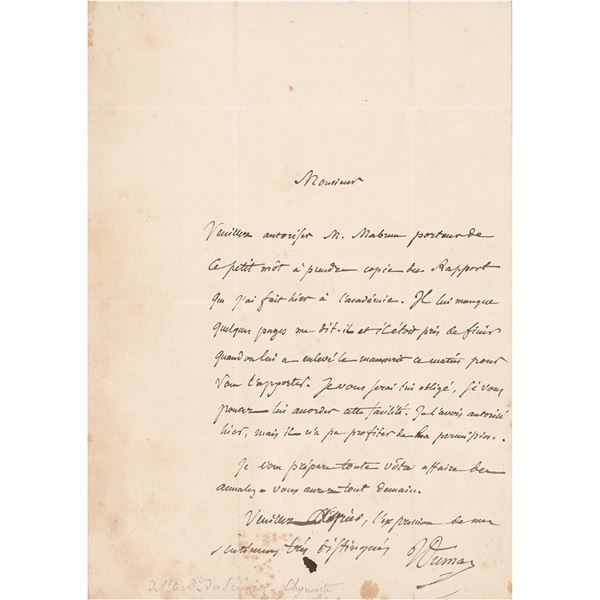 Monsieur
Veuillez autoriser M. Mabrun porteur de
ce petit môt à prendre copie du Rapport
que j'ai fait hier à l'académie. Il lui manque
quelques pages me dit-il et il étoit près de finir
quand on lui a enlevé le manuscrit ce matin pour
vous l'apporter. Je vous serai très obligé, si vous
pouvez lui accorder cette facilité. Je l'avois autorisé
hier, mais il n'a pu profiter de la permission.
Je vous prépare toute vôtre affaire des
annales & vous aurez tout demain.
Veuillez agréer, l'expression de mes
sentimens très distingués
Dumas
de l'acad. des Sciences - Chymiste